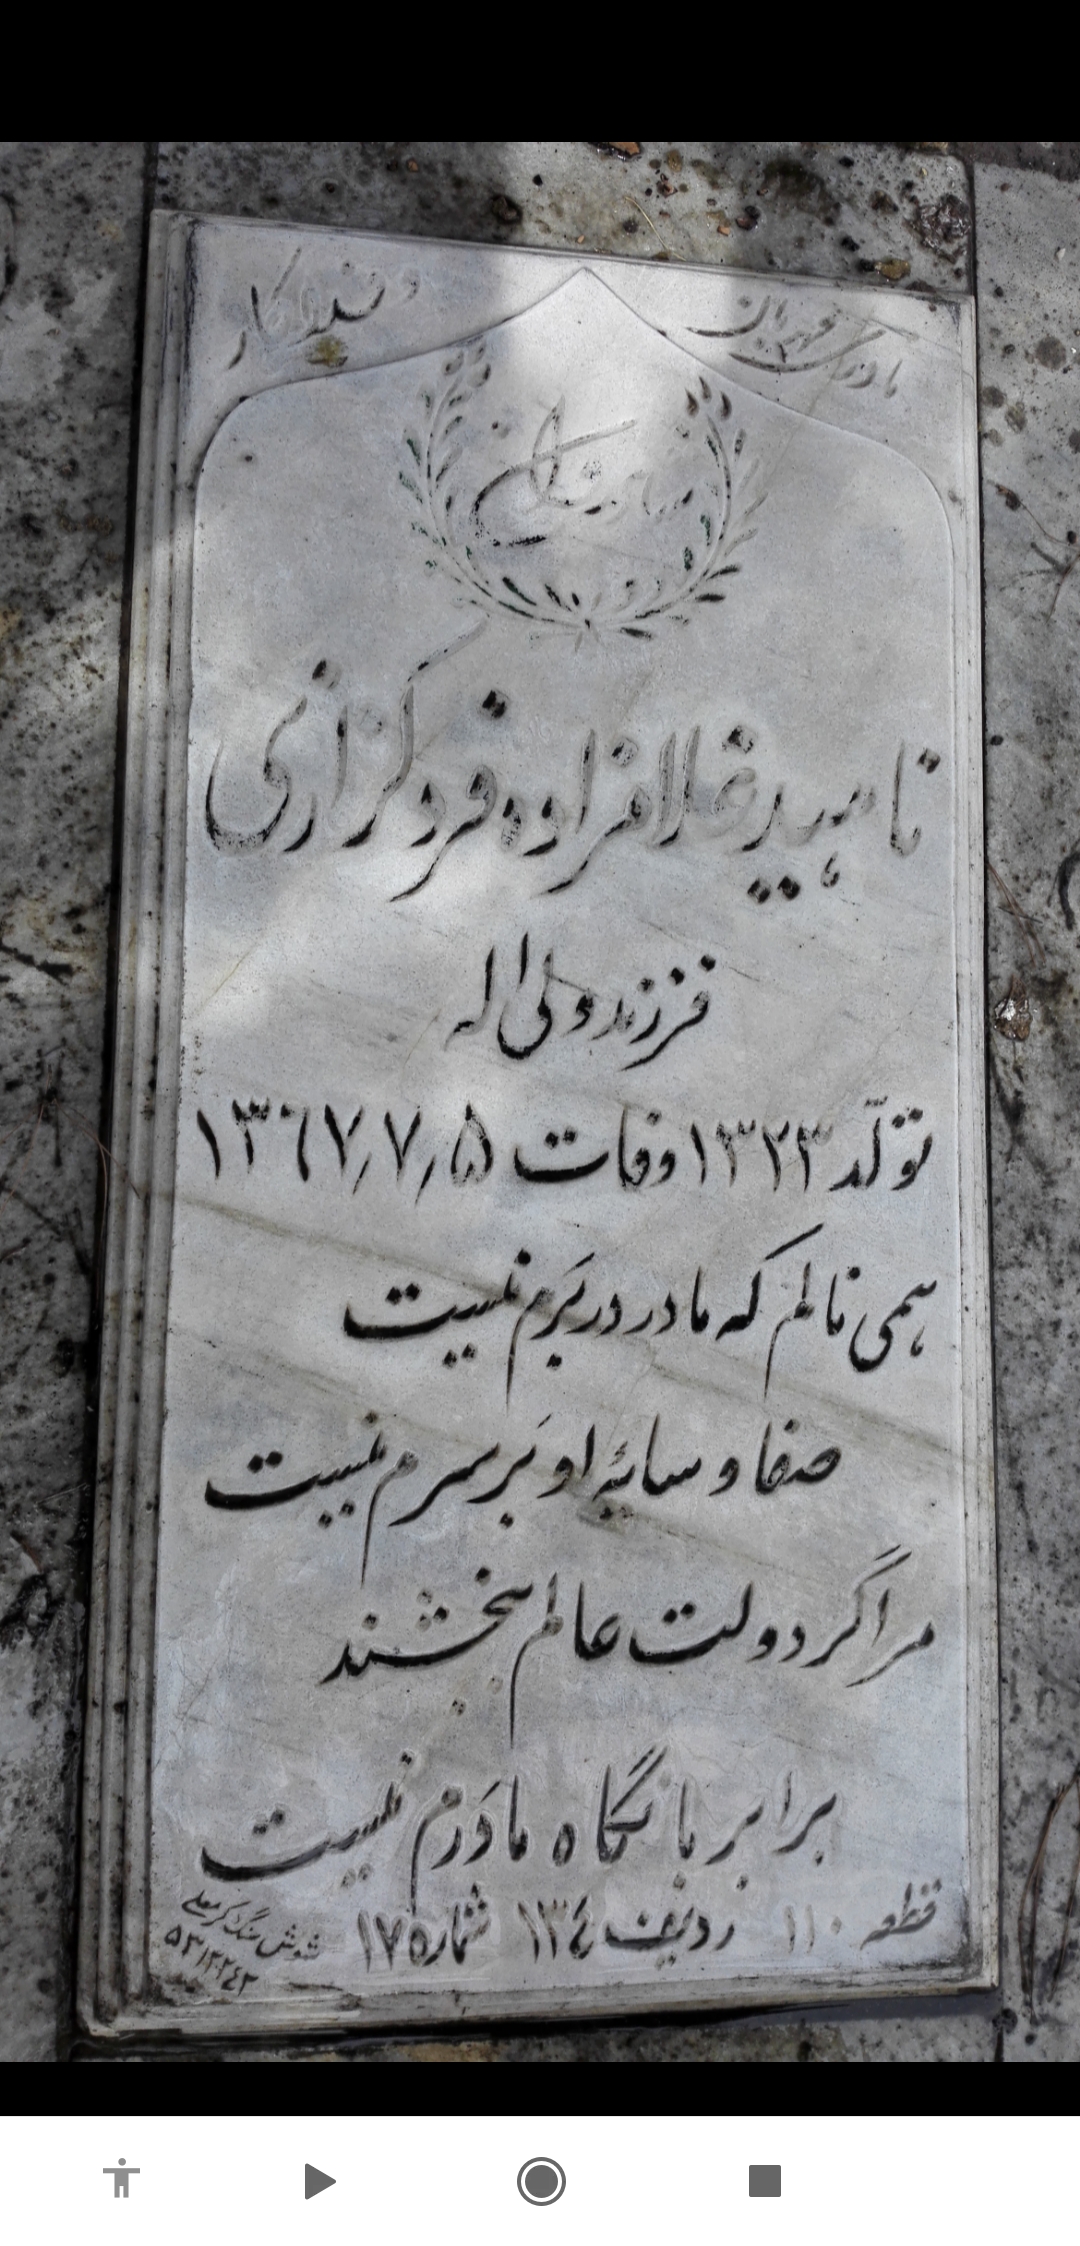 مادری مهربان
و فداکار
شادروان
ناهید غلافزاده فرد کزازی
فرزند ولی اله
تولّد ۱۳۲۳ وفات ۱۳٦۷٫۷٫۵
همی نالم که مادر در بَرَم نیست
صفا و سایۀ او بَر سرم نیست
مرا گر دولت عالم ببخشند
برابر با نگاه مادَرم نیست
قطعه ۱۱۰ ردیف ۱۳٤ شماره ۱۷۵
شوش سنگ کرمعلی
۵۳۱۲۲٤۲